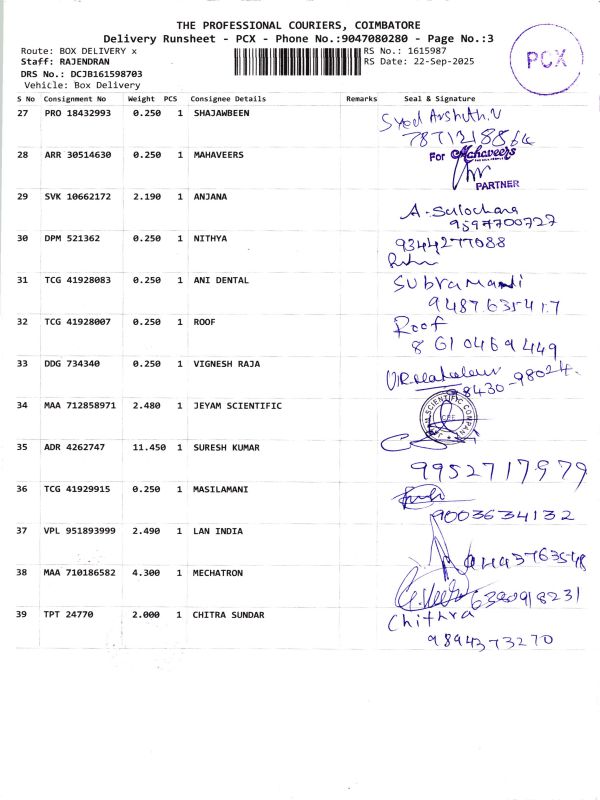 THE PROFESSIONAL COURIERS, COIMBATORE
Delivery Runsheet - PCX - Phone No.:9047080280 - Page No.:3
Route: BOX DELIVERY x
RS No.: 1615987
PCX
Staff: RAJENDRAN
RS Date: 22-Sep-2025
DRS No.: DCJB161598703
Vehicle: Box Delivery
S No Consignment No Weight PCS Consignee Details Remarks Seal & Signature
27 PRO 18432993 0.250 1 SHAJAWBEEN
Syed Arshith.V
28 ARR 30514630 0.250 1 MAHAVEERS
For Mahaveers
PARTNER
29 SVK 10662172 2.190 1 ANJANA
A. Sulochana
9597700727
30 DPM 521362 0.250 1 NITHYA
9344277088
31 TCG 41928083 0.250 1 ANI DENTAL
Subramani
9487635417
32 TCG 41928007 0.250 1 ROOF
Roof
8610469449
33 DDG 734340 0.250 1 VIGNESH RAJA
98430-98024.
34 MAA 712858971 2.480 1 JEYAM SCIENTIFIC
SCIENTIFIC COMPANY
CBE
35 ADR 4262747 11.450 1 SURESH KUMAR
9952717979
36 TCG 41929915 0.250 1 MASILAMANI
9003634132
37 VPL 951893999 2.490 1 LAN INDIA
38 MAA 710186582 4.300 1 MECHATRON
6380918231
39 TPT 24770 2.000 1 CHITRA SUNDAR
Chithra
9894373270